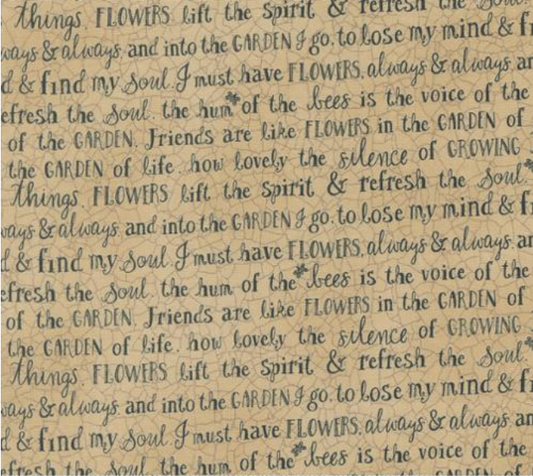 things. FLOWERS lift the Spirit & refresh the Soul
ways & always. and into the GARDEN I go. to lose my mind & fi
d & find my Soul I must have FLOWERS, always & always. an
efresh the Soul. the hum of the bees is the voice of the
of the GARDEN. Friends are like FLOWERS in the GARDEN of
the GARDEN of life. how lovely the silence of GROWING
things. FLOWERS lift the Spirit & refresh the Soul
ways & always. and into the GARDEN I go. to lose my mind & fi
d & find my Soul I must have FLOWERS, always & always. an
efresh the Soul. the hum of the bees is the voice of the
of the GARDEN. Friends are like FLOWERS in the GARDEN of
the GARDEN of life. how lovely the silence of GROWING
things. FLOWERS lift the Spirit & refresh the Soul
ways & always. and into the GARDEN I go. to lose my mind & fi
d & find my Soul I must have FLOWERS, always & always. an
efresh the Soul. the hum of the bees is the voice of the